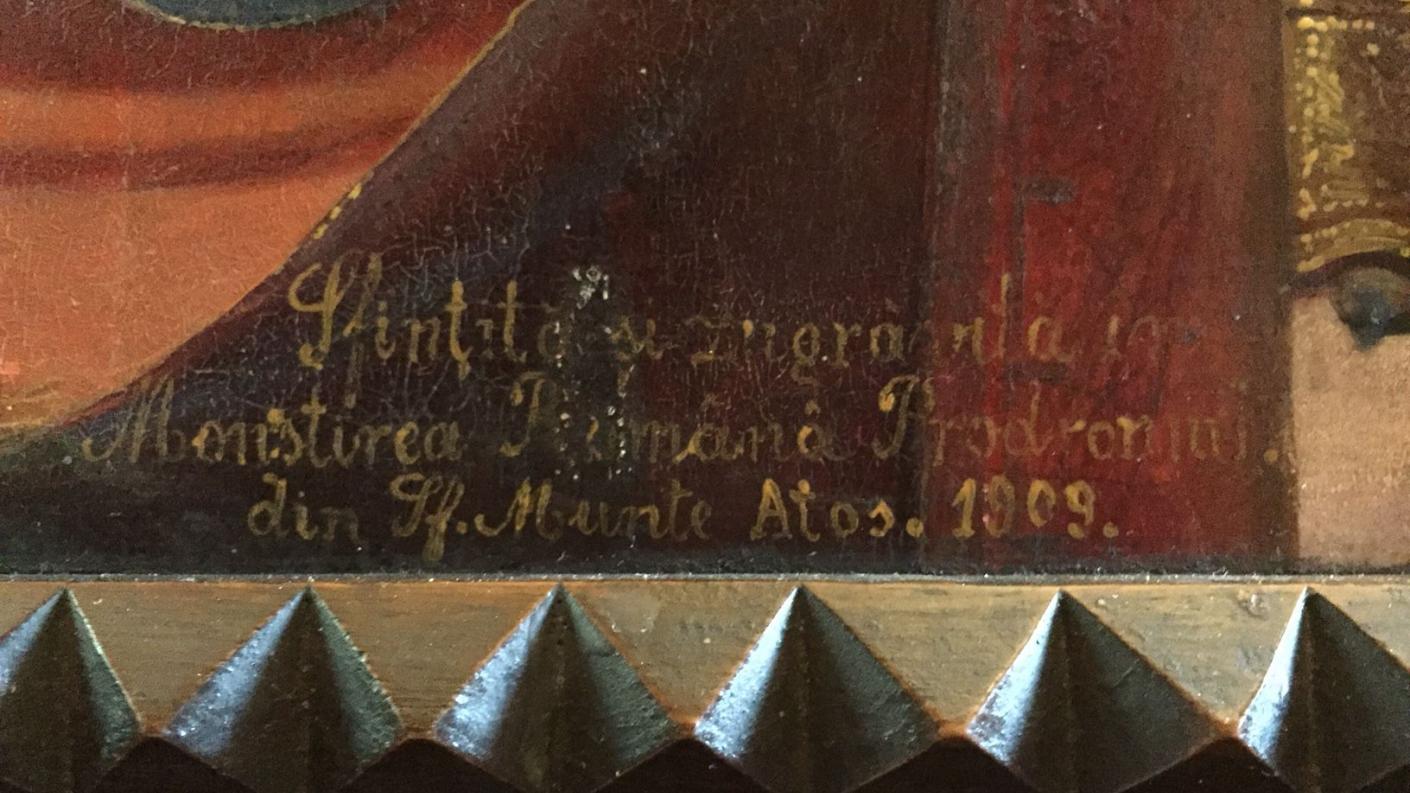 Sfințită și zugrăvită in
Monstirea Română Prodromul.
din Sf. Munte Atos. 1909.